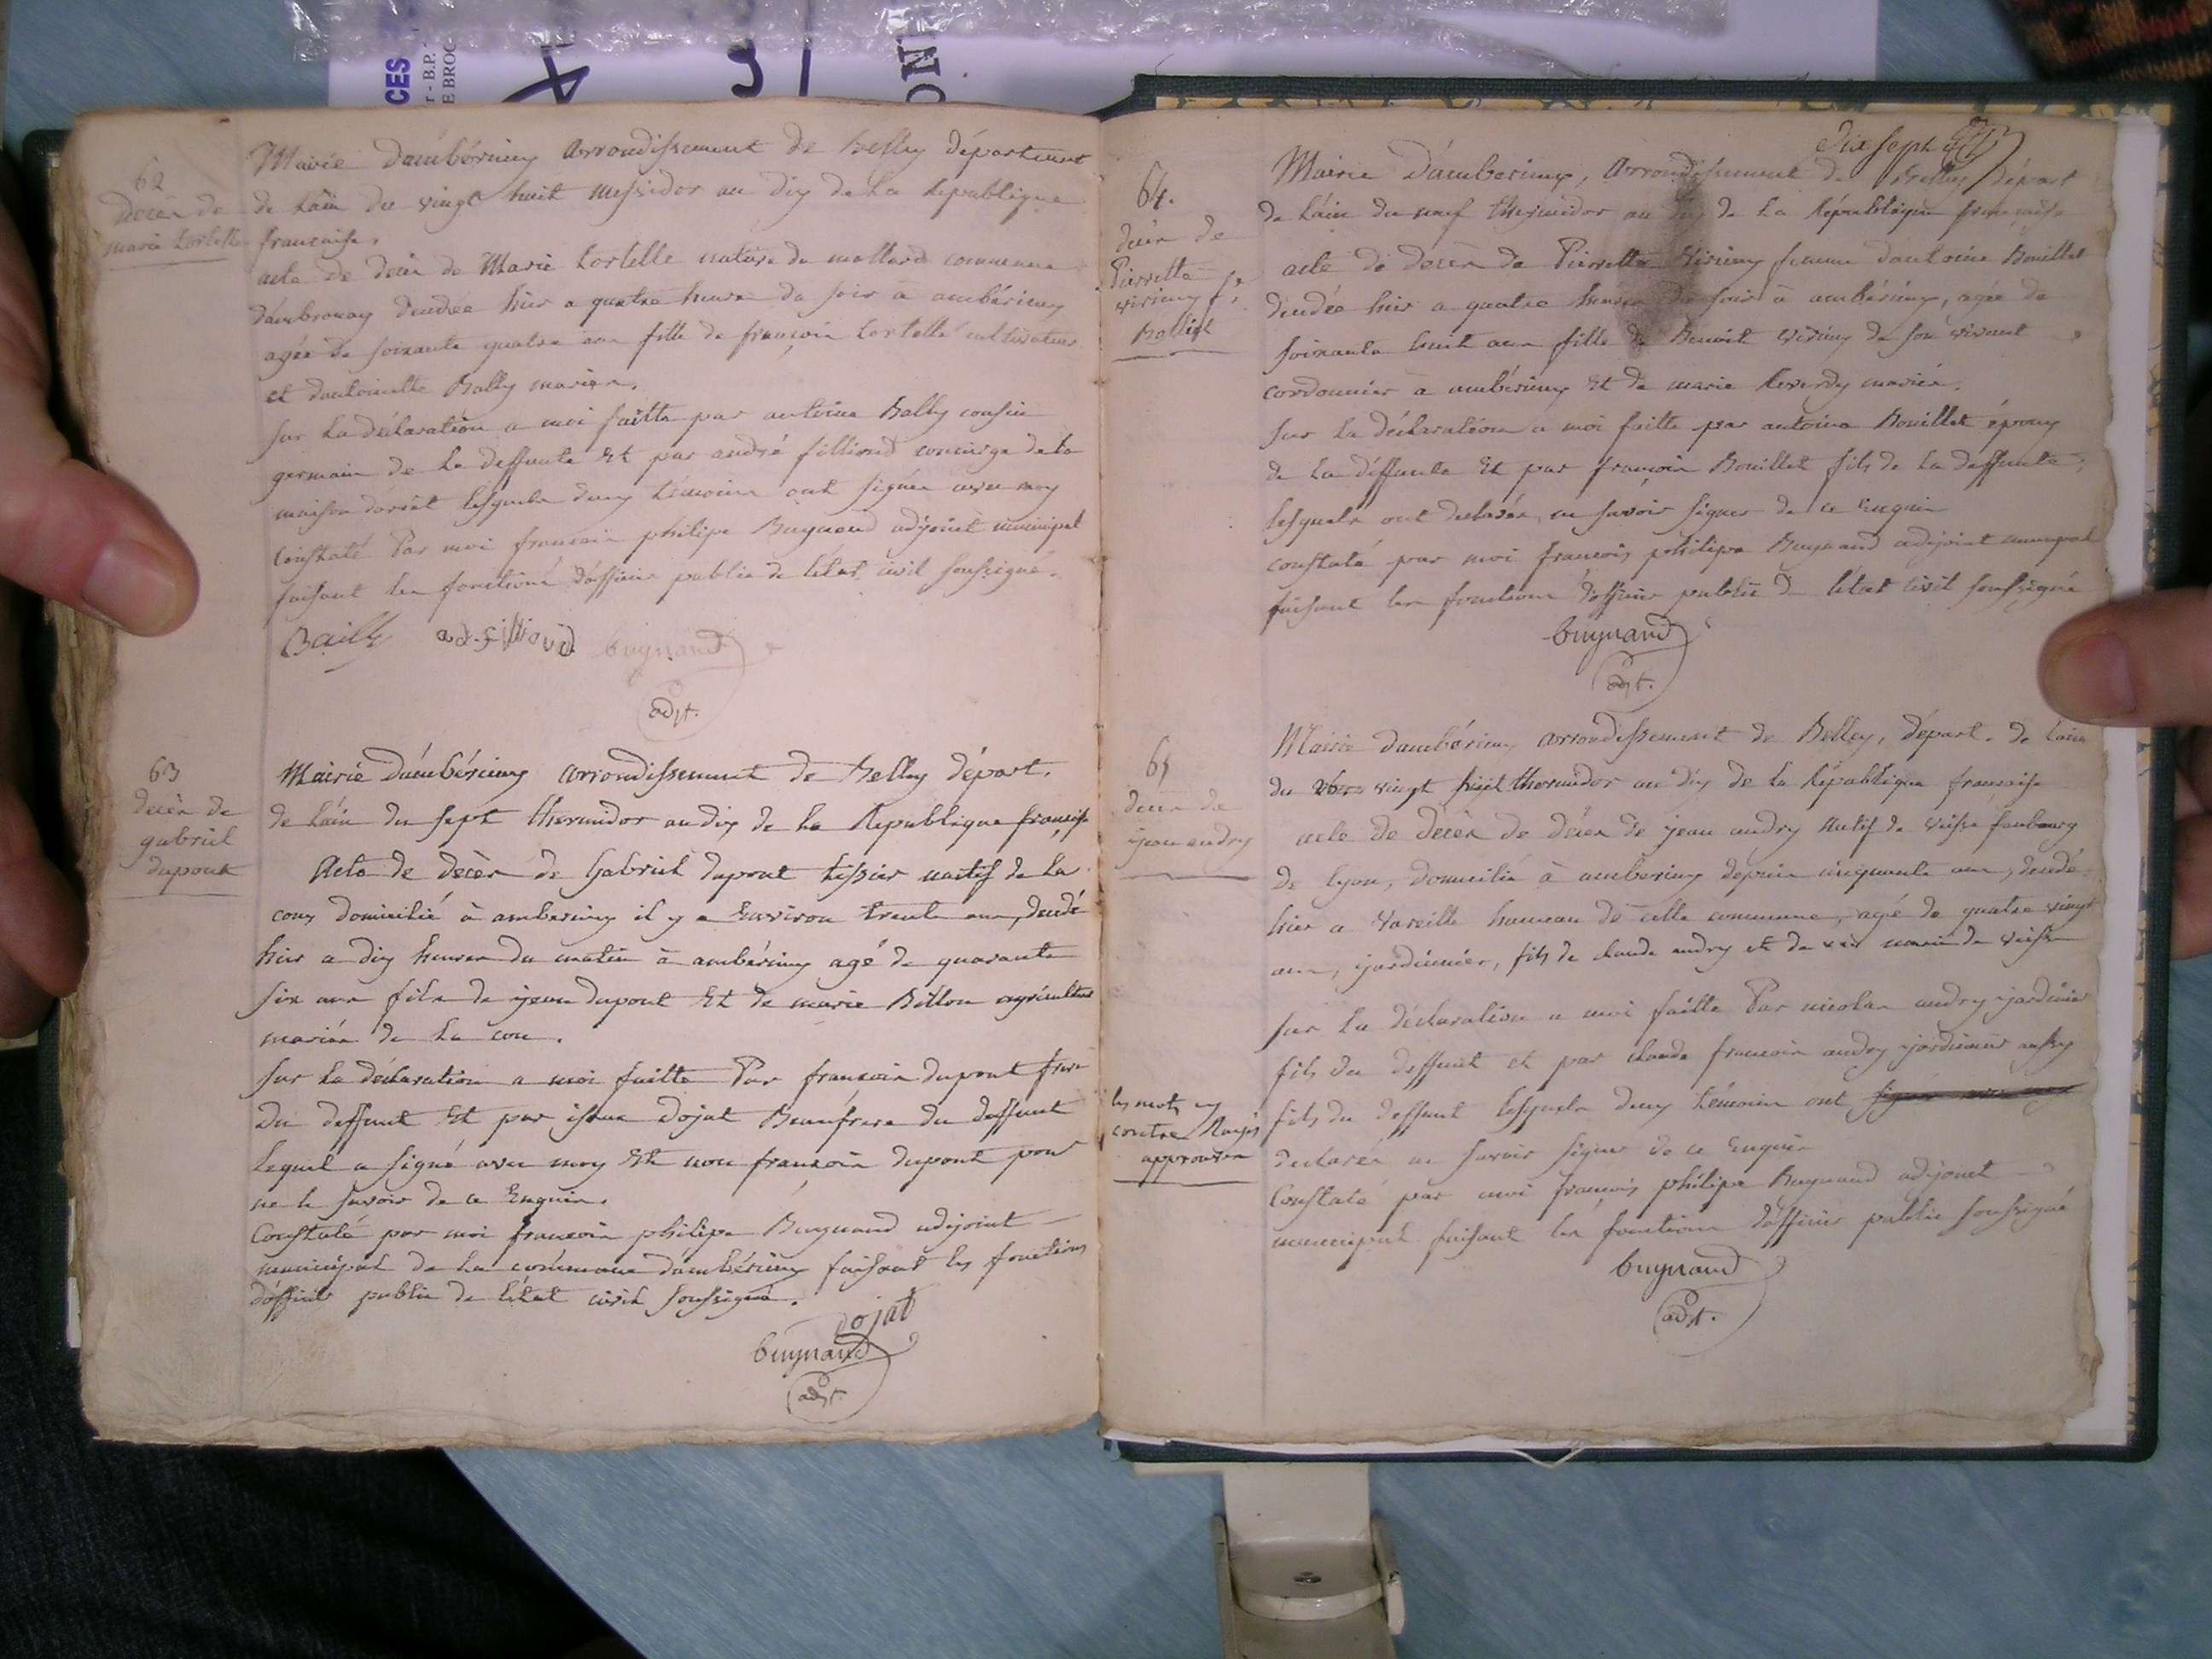 CES
r - B.P.
E BROC
ON
62
décès de
marie tortelle
Mairie d'ambérieux arrondissement de Belley département
de l'ain du vingt huit messidor an dix de la république
française.
acte de décès de Marie tortelle native du mollard commune
d'ambronay décédée hier a quatre heures du soir à ambérieux
agée de soixante quatre ans fille de françois tortelle cultivateur
et d'antoinette Bally mariés.
sur la déclaration a moi faitte par antoine Bally cousin
germain de la deffunte Et par andré filliond concierge de la
maison d'arrêt lesquels deux témoins ont signés avec moy
Constaté Par moi françois philipe Buynand adjoint municipal
faisant les fonctions d'officier public de l'état civil soussigné.
Bailly ad. filliond buynand
adjt.
63
décès de
gabriel
dupont
Mairie d'ambérieux arrondissement de Belley départ.
de l'ain du sept thermidor an dix de la République françise
Acte de décès de Gabriel dupont tissier natif de la
coux domicilié à amberieux il y a Environ trente ans, décédé
hier a dix heures du matin à ambérieux agé de quarante
six ans fils de jean dupont Et de marie Billon agriculteurs
mariés de la cou.
sur la déclaration a moi faitte Par françois dupont frere
du deffunt Et par dojat Beaufrere du deffunt
lequel a signé avec moy Et non françois dupont pour
ne le savoir de ce Enquis.
Constaté par moi françois philipe Buynand adjoint
municipal de la commune d'ambérieux faisant les fonctions
d'officier public de l'état civil soussigné.
dojat
buynand
adjt.
dix sept
64.
décès de
Pierrette
vivieux fe
Bollet
Mairie d'amberieux, arrondissement de Belley, départ
de l'ain du neuf thermidor an dix de la République française
acte de décès de Pierrette femme d'antoine Bouillet
décédée hier a quatre heures du soir à ambérieux, agée de
soixante huit ans fille de Benoit de son vivant
cordonnier à ambérieux Et de marie Reverdy mariés.
sur la déclaration a moi faitte par antoine Bouillet époux
de la deffunte Et par françois Bouillet fils de la deffunte,
lesquels ont declarés ne savoir signer de ce Enquis
constaté par moi françois philipe Buynand adjoint municipal
faisant les fonctions d'officier public de l'état civil soussigné
buynand
adjt.
65
décès de
jean andry
Mairie d'ambérieux arrondissement de Belley, départ. de l'ain
du vingt sept thermidor an dix de la République française
acte de décès de décès de jean andry natif de vaise faubourg
de lyon, domicilié à amberieux depuis cinquante ans, décédé
hier a vareille hameau de cette commune, agé de quatre vingt
ans, jardinier, fils de claude andry et de mariés de vaise
sur la déclaration a moi faitte Par nicolas andry jardinier
fils du deffunt et par claude françois andry jardinier aussy
fils du deffunt lesquels deux témoins ont signés avec moy
les mots cy
contre Rayés
approuvés
declarés ne savoir signer de ce Enquis
Constaté par moi françois philipe Buynand adjoint
municipal faisant les fonctions d'officier public soussigné
buynand
adjt.